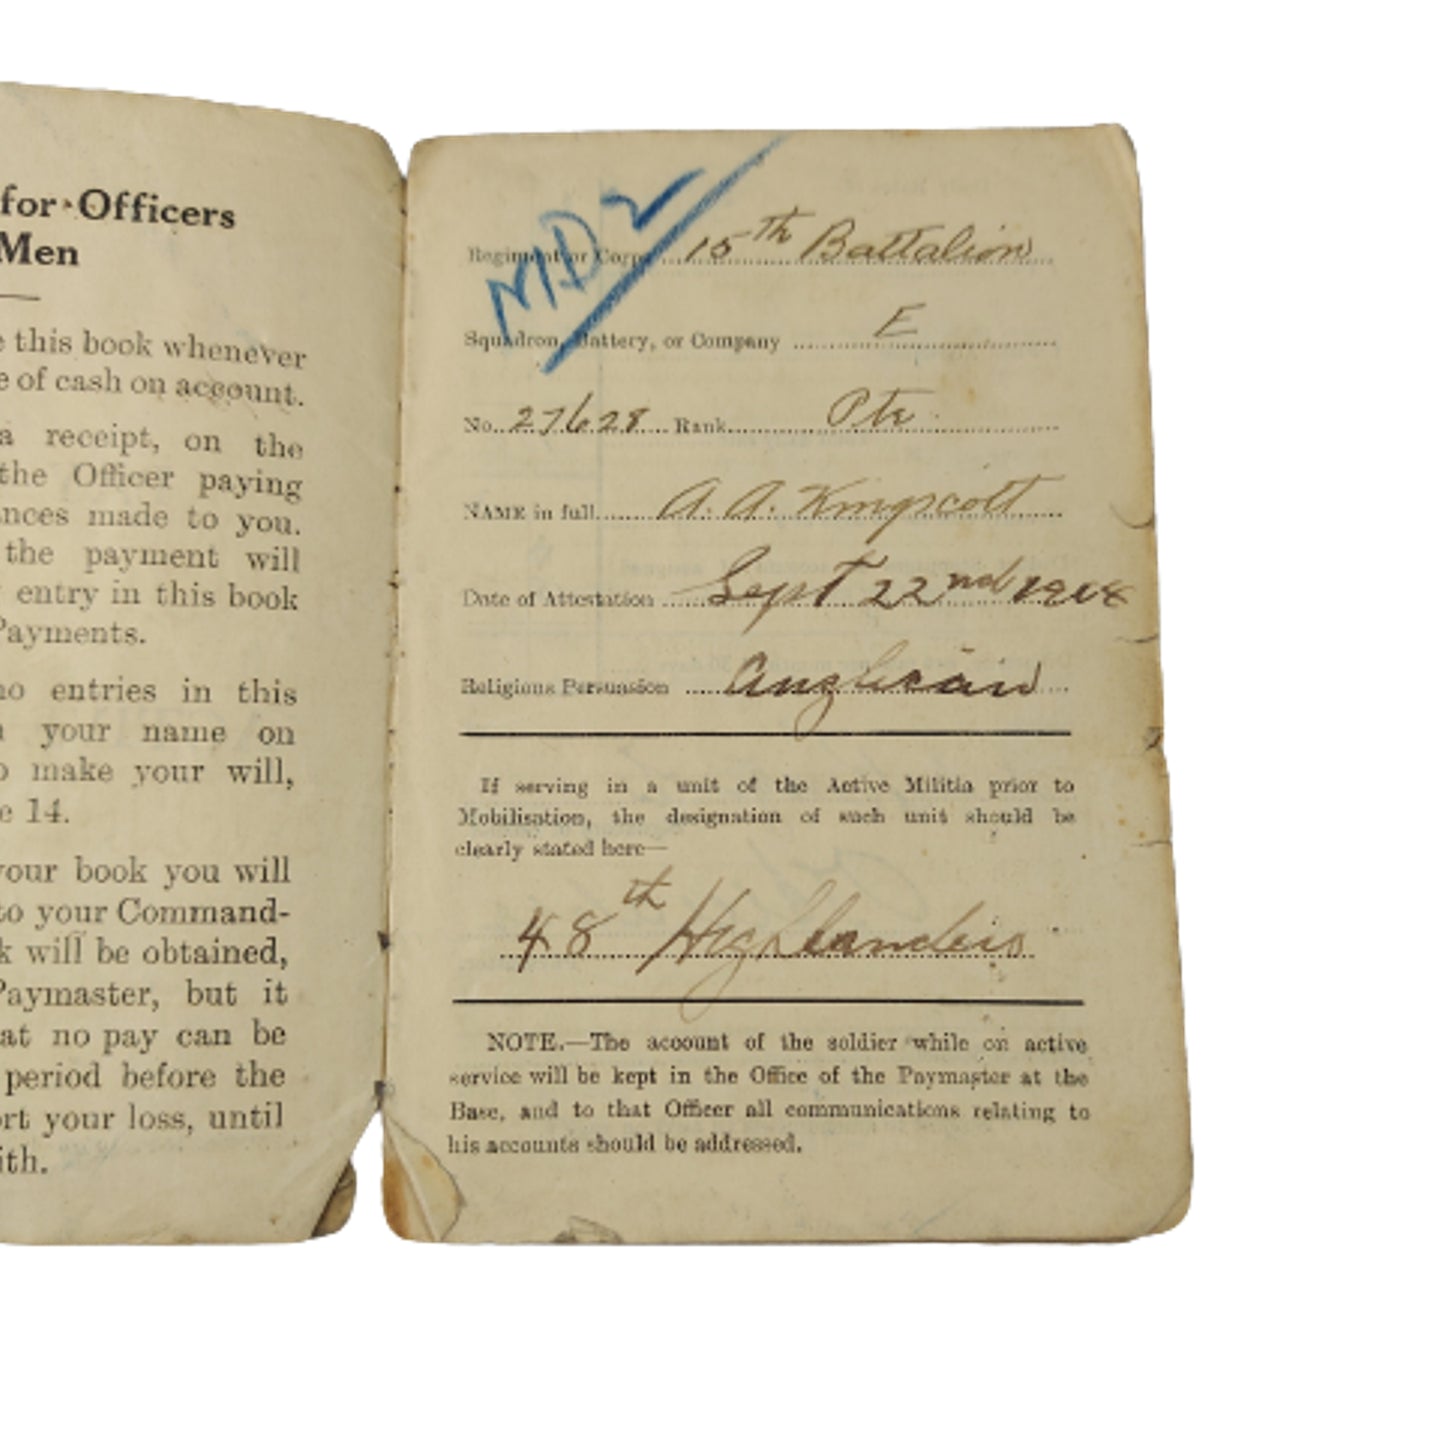 for Officers
Men
this book whenever
e of cash on account.
a receipt, on the
the Officer paying
nces made to you.
the payment will
entry in this book
Payments.
no entries in this
your name on
o make your will,
e 14.
your book you will
to your Command-
k will be obtained,
Paymaster, but it
at no pay can be
period before the
rt your loss, until
ith.
MD2
Regiment or Corps 15th Battalion
Squadron, Battery, or Company E
No. 27628 Rank Pte
NAME in full A. A. Kingscott
Date of Attestation Sept 22nd 1914
Religious Persuasion Anglican
If serving in a unit of the Active Militia prior to
Mobilisation, the designation of such unit should be
clearly stated here—
48th Highlanders
NOTE.—The account of the soldier while on active
service will be kept in the Office of the Paymaster at the
Base, and to that Officer all communications relating to
his accounts should be addressed.